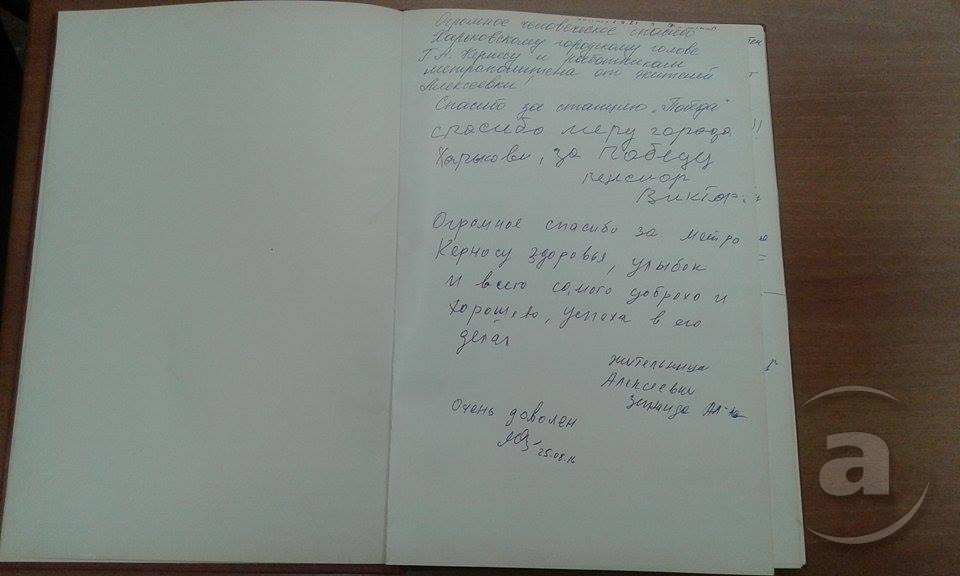 Огромное человеческое спасибо
Харьковскому городскому голове
Г.А. Кернесу и работникам
метрополитена от жителей
Алексеевки!
Спасибо за станцию "Победа"
спасибо меру города
Харькови, за Победу
пенсиор
Виктор
Огромное спасибо за метро
Керносу здоровья, улыбок
и всего самого доброхо и
хорошего, успеха в его
делах
жительница
Алексеевки
Очень доволен
25.08.16
a